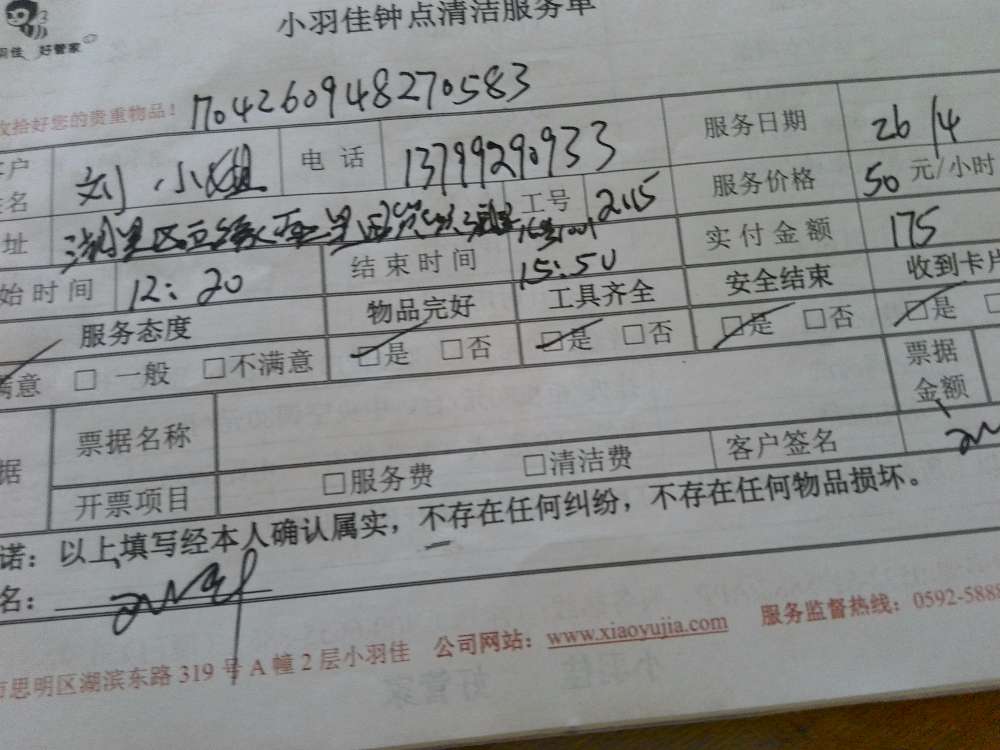 小羽佳钟点清洁服务单
羽佳 好管家
收拾好您的贵重物品！ 1704260948270583
客户 刘小姐 电话 13799290933 服务日期 26/4
姓名 工号 2115 服务价格 50元/小时
址 湖里区 实付金额 175
始时间 12:20 结束时间 15:50
服务态度 物品完好 工具齐全 安全结束 收到卡片
满意 □ 一般 □不满意 □是 □否 □是 □否 □是 □否 □是
据 票据名称 票据金额
开票项目 □服务费 □清洁费 客户签名
诺：以上填写经本人确认属实，不存在任何纠纷，不存在任何物品损坏。
名：
市思明区湖滨东路 319 号 A 幢 2 层小羽佳 公司网站：www.xiaoyujia.com 服务监督热线：0592-5888